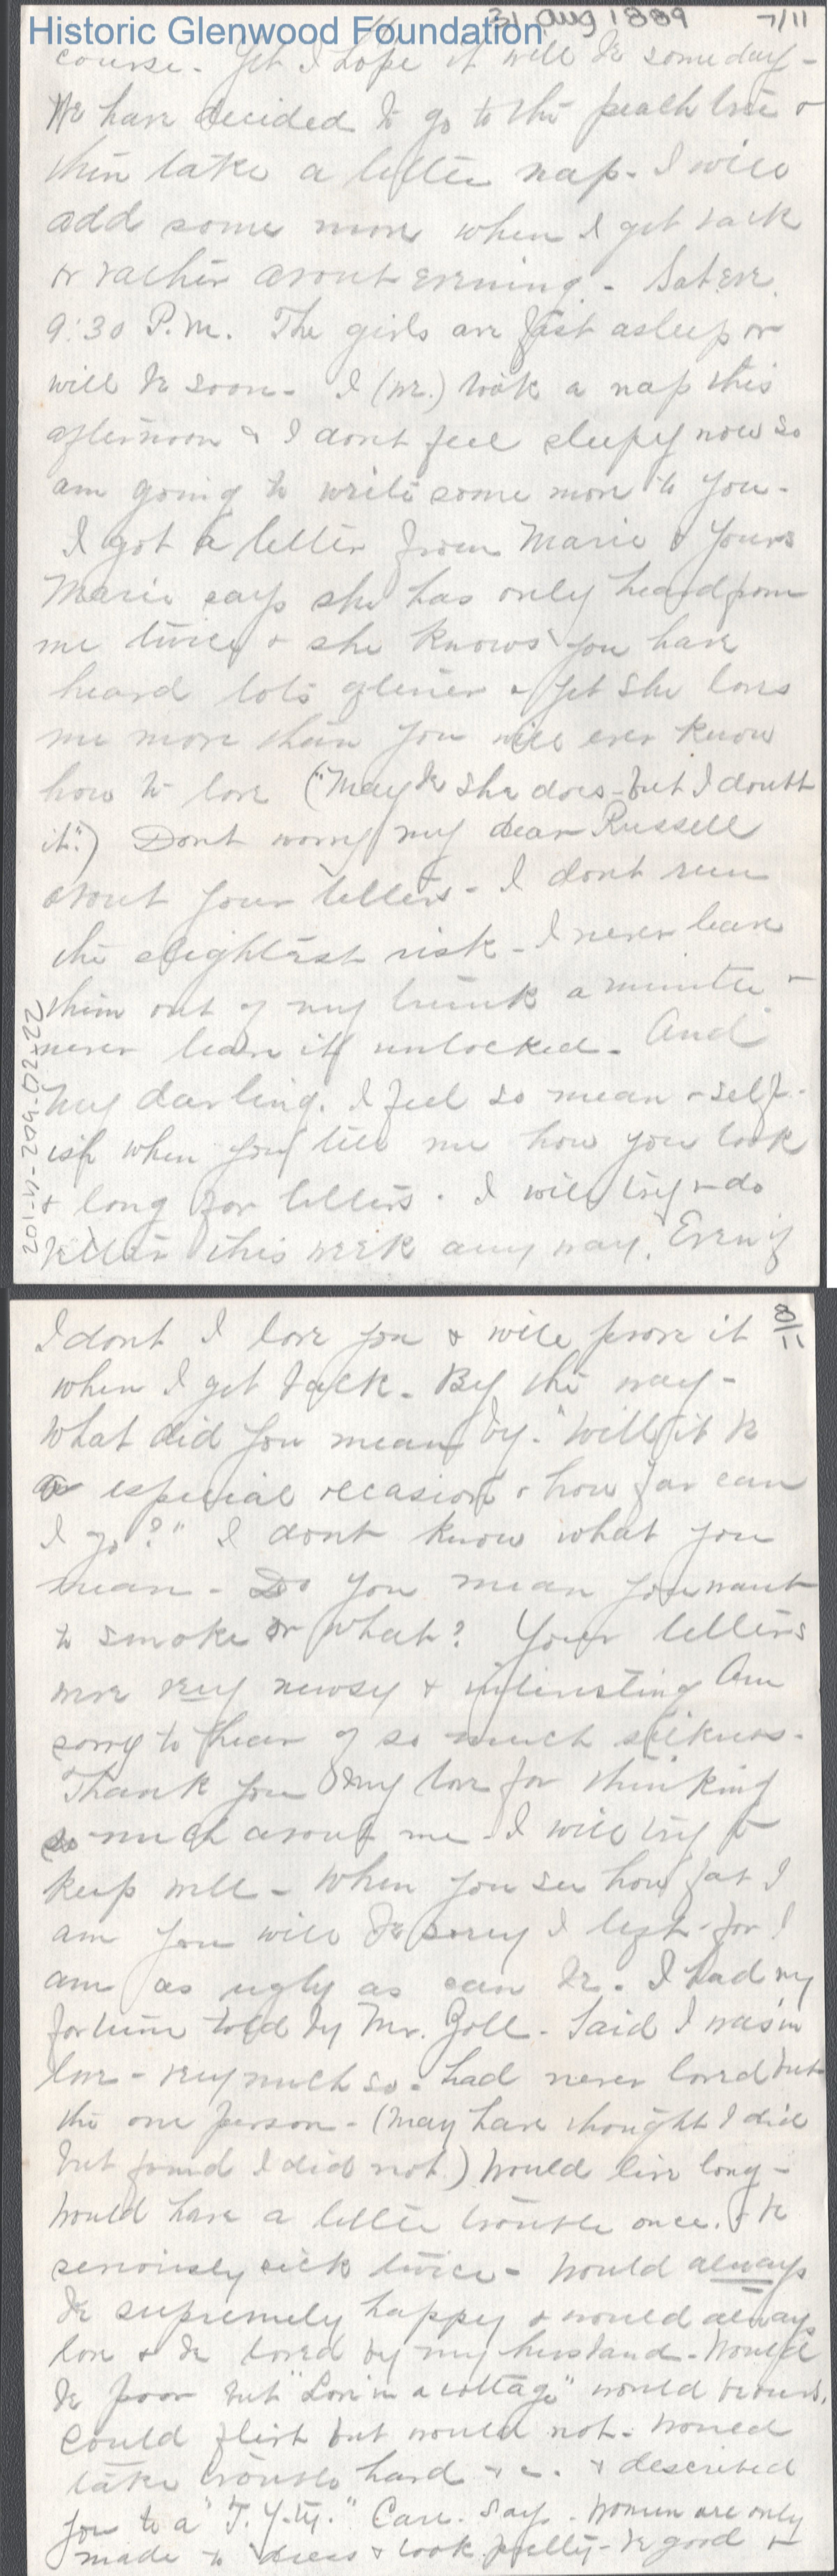 Historic Glenwood Foundation
31 Aug 1889
7/11
course. Yet I hope it will be some day -
We have decided to go to the peach tree &
then take a little nap. I will
add some more when I get back
or rather about evening. - Sat. Eve.
9:30 P.M. The girls are fast asleep or
will be soon. I (we.) took a nap this
afternoon & I dont feel sleepy now so
am going to write some more to you -
I got a letter from Marie & yours
Marie says she has only heard from
me twice & she knows you have
heard lots oftener & yet she loves
me more than you will ever know
how to love ("May be she does - but I doubt
it.") Dont worry my dear Russell
about your letters - I dont run
the slightest risk - I never leave
them out of my trunk a minute &
never leave it unlocked. And
my darling. I feel so mean & self-
ish when you tell me how you look
& long for letters. I will try & do
better this week any way. Even if
201-4-204-02-22
8/11
I dont I love you & will prove it
when I get back. By the way -
What did you mean by. "Will it be
a especial occasion & how far can
I go?" I dont know what you
mean - Do you mean you want
to smoke or what? Your letters
were very newsy & interesting Am
sorry to hear of so much sickness.
Thank you my love for thinking
so much about me - I will try to
keep well - When you see how fat I
am you will be sorry I left - for I
am as ugly as can be. I had my
fortune told by Mr. Zoll - Said I was in
love - very much so - had never loved but
the one person - (May have thought I did
but found I did not.) Would live long -
Would have a little trouble once. & be
seriously sick twice - Would always
be supremely happy & would always
love & be loved by my husband. Would
be poor but "Love in a cottage" would be ours.
Could flirt but would not. Would
take trouble hard & c. & described
you to a "T. Y. ty." Care. Says. Women are only
made to dress & look pretty - be good &